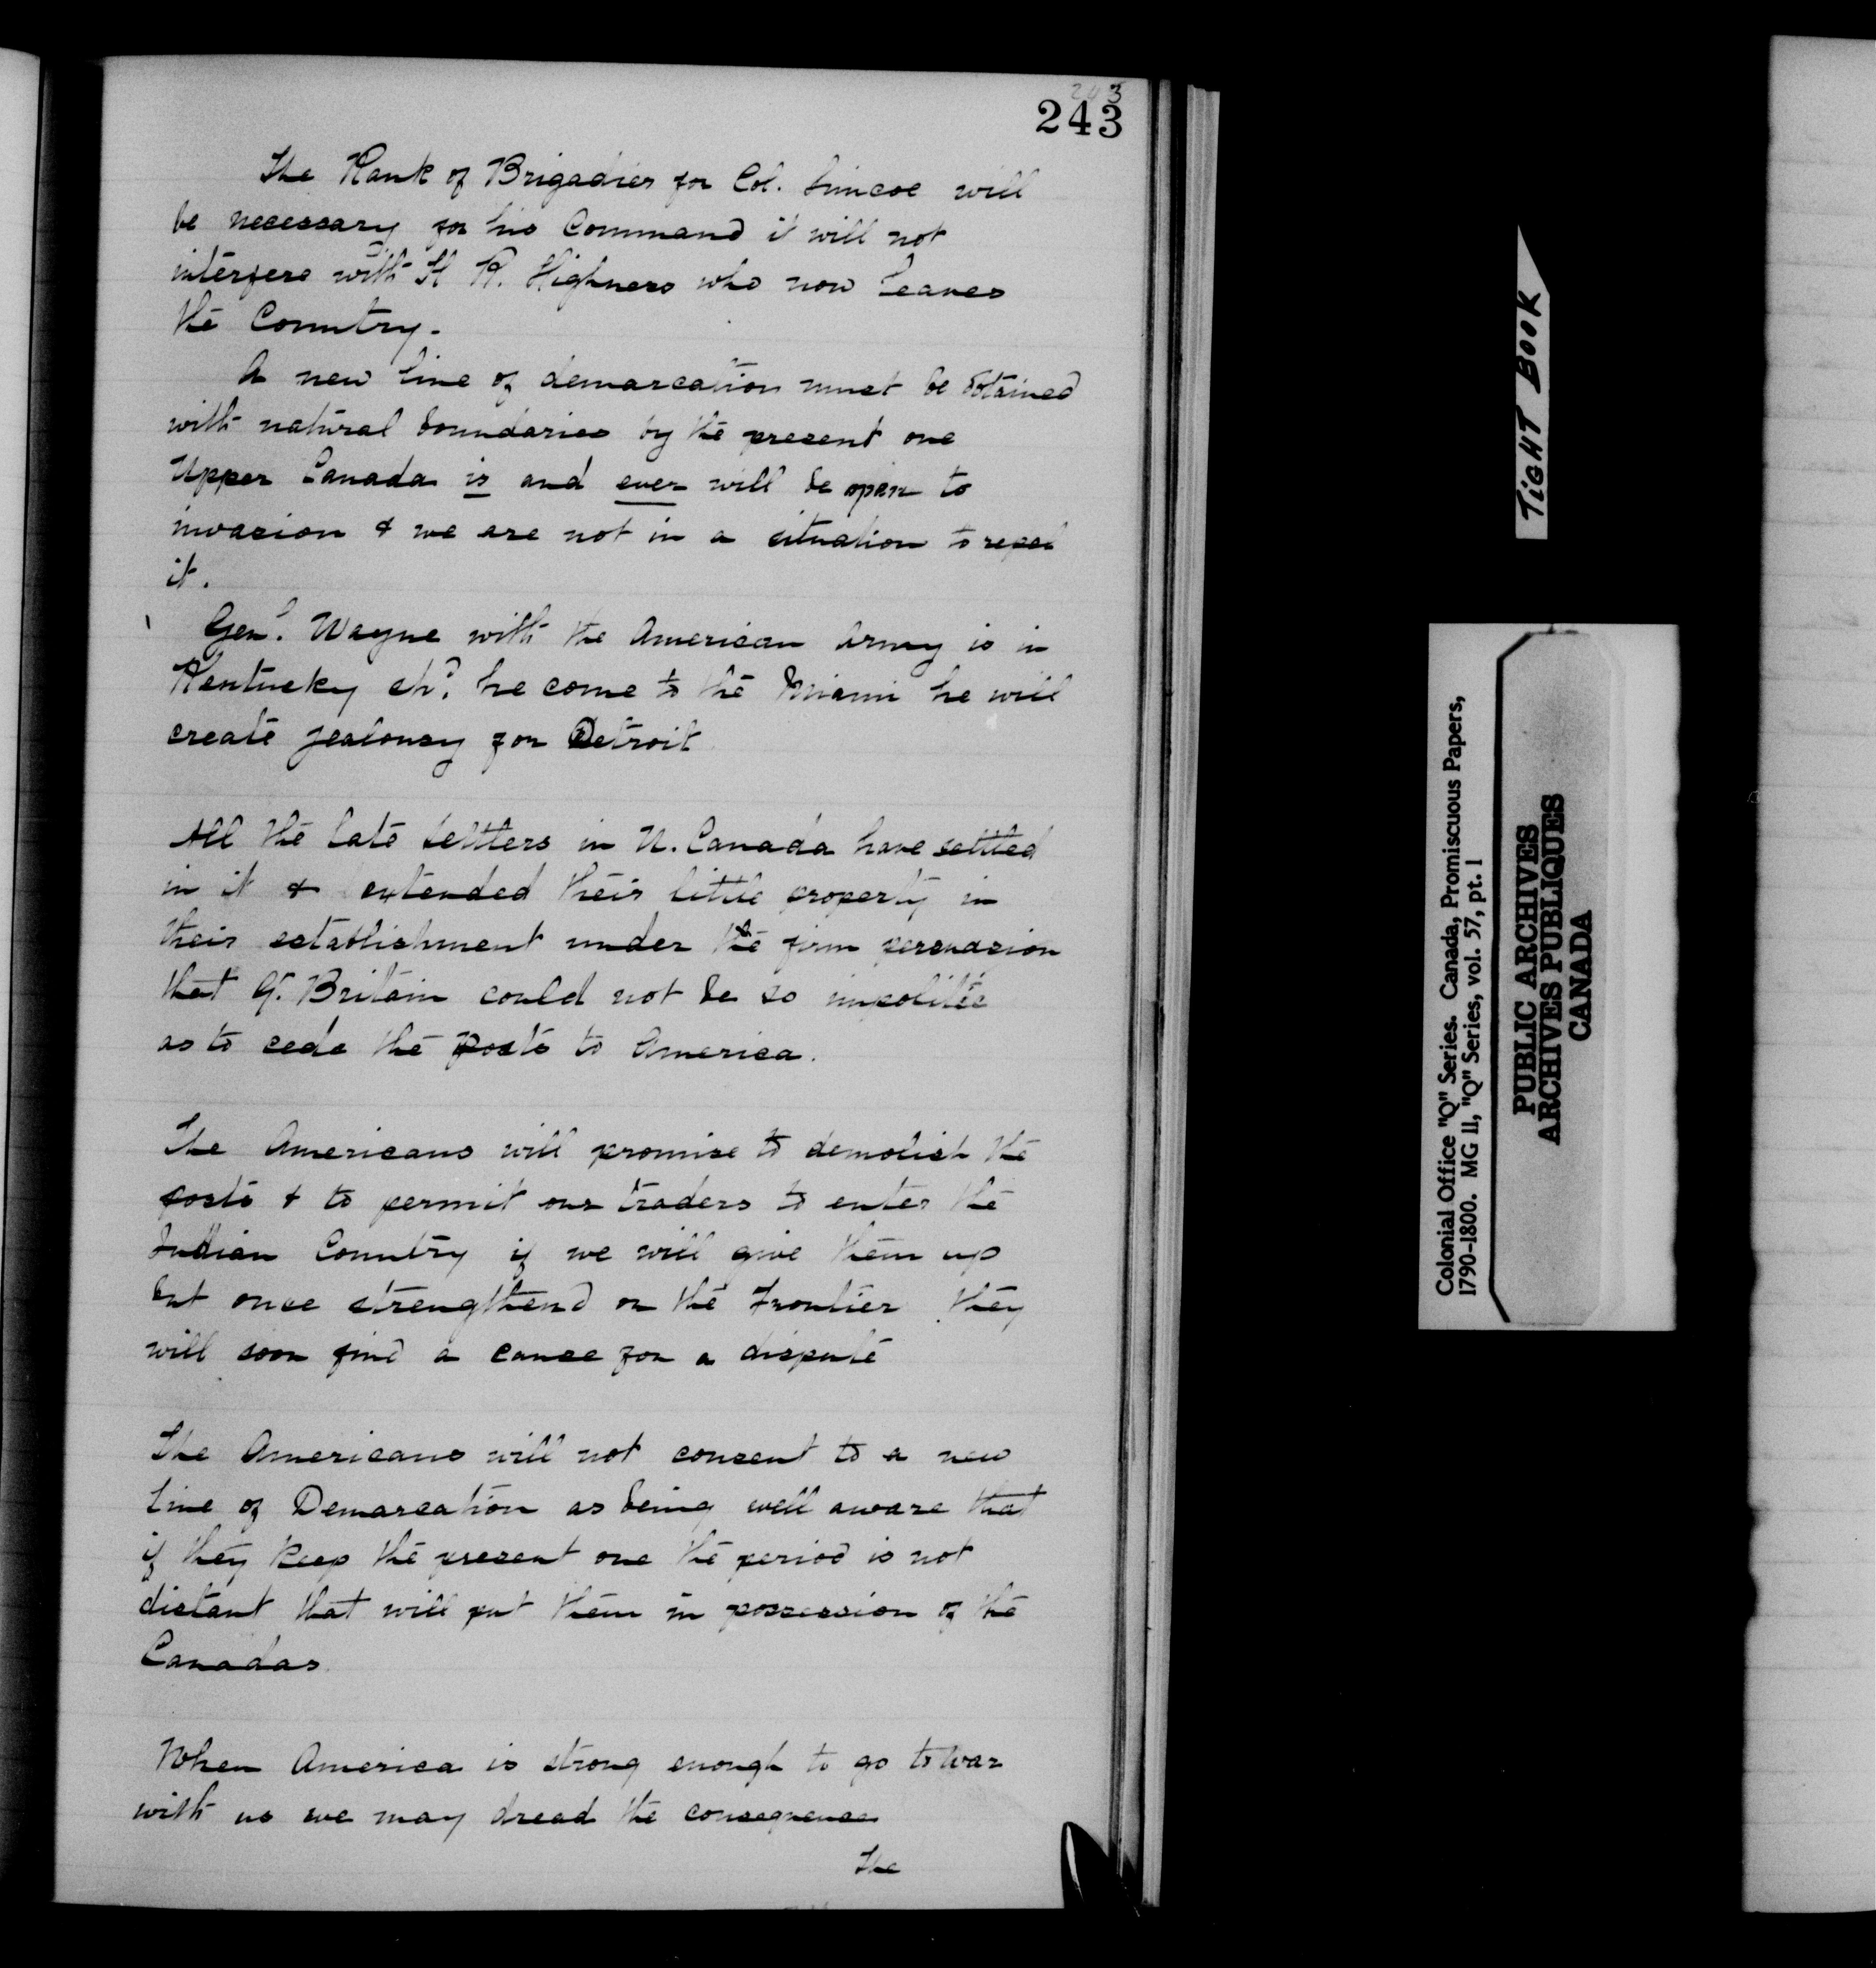 243
243
The Rank of Brigadier for Col. Simcoe will
be necessary for his Command it will not
interfere with H R. Highness who now leaves
the Country.
A new line of demarcation must be obtained
with natural boundaries by the present one
Upper Canada is and ever will be open to
invasion & we are not in a situation to repel
it.
Genl. Wayne with the American Army is in
Kentucky shd. he come to the Miami he will
create jealousy for Detroit
All the late Settlers in U. Canada have settled
in it & extended their little property in
their establishment under the firm persuasion
that Gt. Britain could not be so impolitic
as to cede the posts to America.
The Americans will promise to demolish the
posts & to permit our traders to enter the
Indian Country if we will give them up
but once strengthend on the Frontier they
will soon find a cause for a dispute
The Americans will not consent to a new
Line of Demarcation as being well aware that
if they keep the present one the period is not
distant that will put them in possession of the
Canadas
When America is strong enough to go to War
with us we may dread the consequences
The
TIGHT BOOK
Colonial Office "Q" Series. Canada, Promiscuous Papers,
1790-1800. MG 11, "Q" Series, vol. 57, pt. 1
PUBLIC ARCHIVES
ARCHIVES PUBLIQUES
CANADA